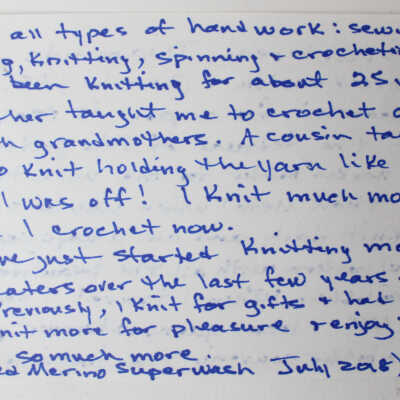 all types of handwork: sewi
g, knitting, spinning & crocheti
been knitting for about 25 y
her taught me to crochet a
h grandmothers. A cousin ta
o knit holding the yarn like
I was off! I knit much mo
I crochet now.
ve just started knitting mo
eaters over the last few years.
reviously, I knit for gifts & hat
nit more for pleasure & enjoy
so much more.
ed Merino Superwash July 2018)